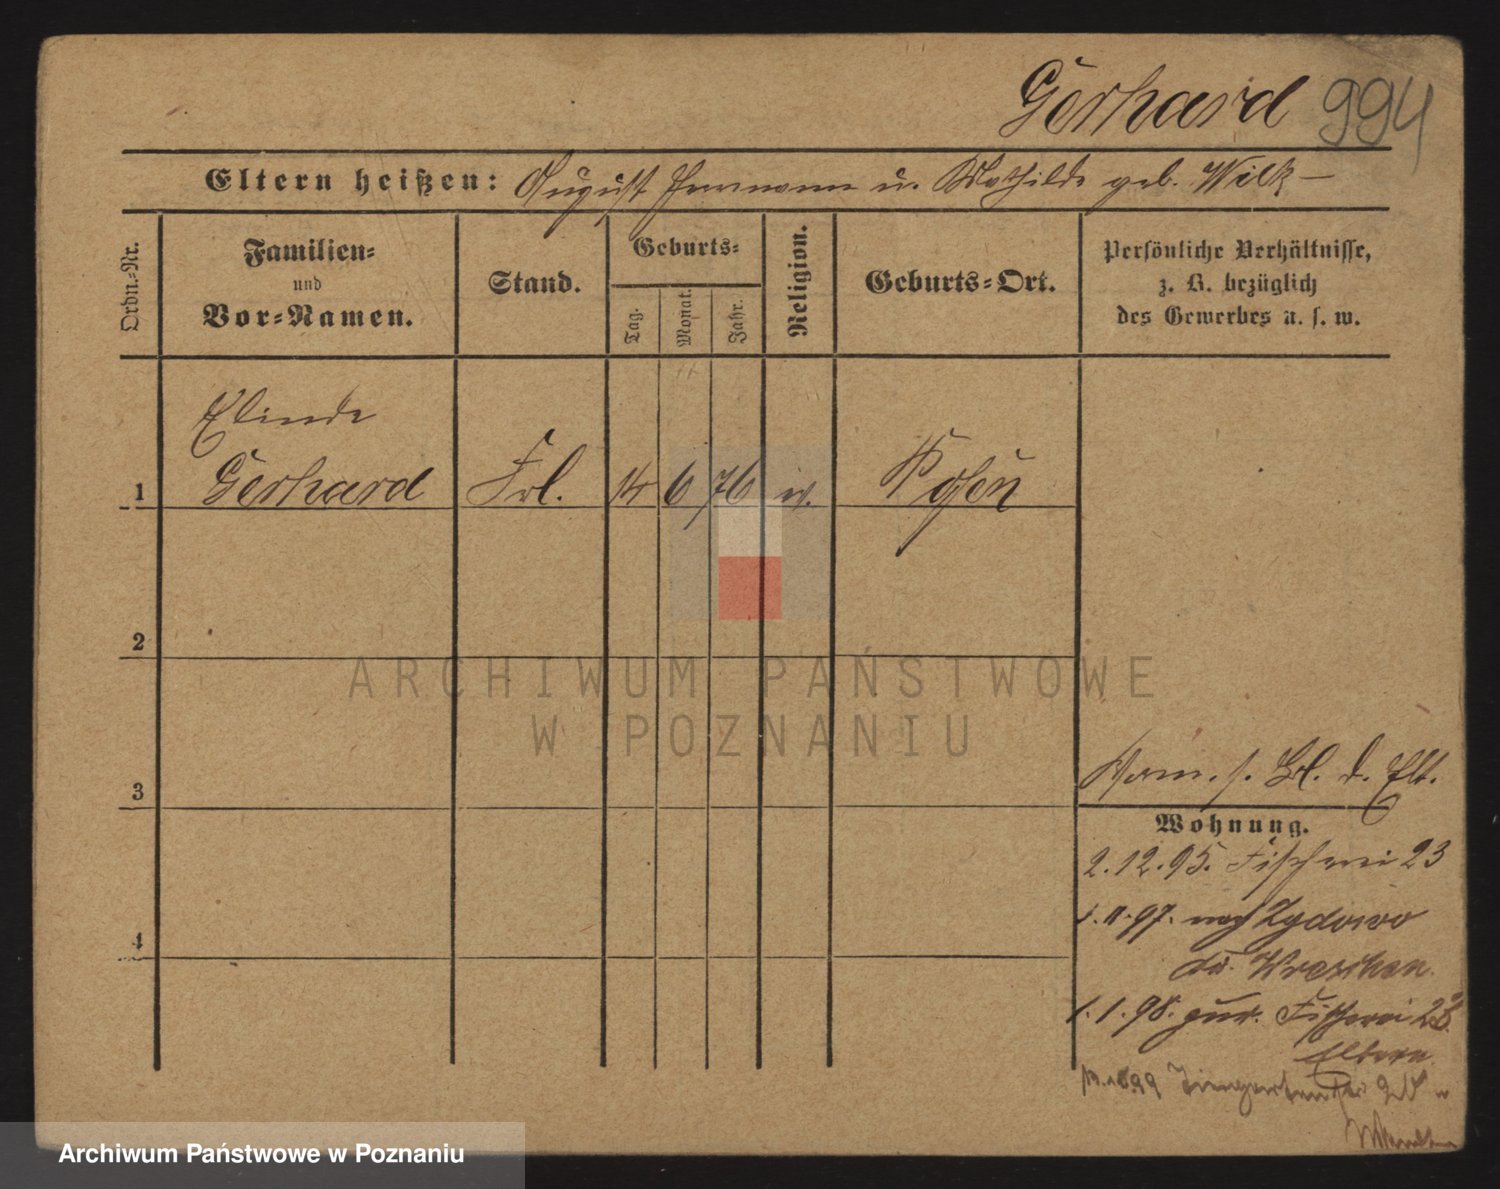 Gerhard 994
Eltern heißen: August Hermann u. Mathilde geb. Wilk —
Ordn.-Nr.
Familien-
und
Vor-Namen.
Stand.
Geburts-
Tag.
Monat.
Jahr.
Religion.
Geburts-Ort.
Persönliche Verhältnisse,
z. B. bezüglich
des Gewerbes u. s. w.
Gerhard Frl. 14 6 76 Posen
1
2
3
4
Wohnung.
2.12.95. Fischerei 23
1.11.97. nach Zydowo
Wreschen.
1.1.98. zur. Fischerei 23
Eltern
ARCHIWUM PAŃSTWOWE
W POZNANIU
Archiwum Państwowe w Poznaniu